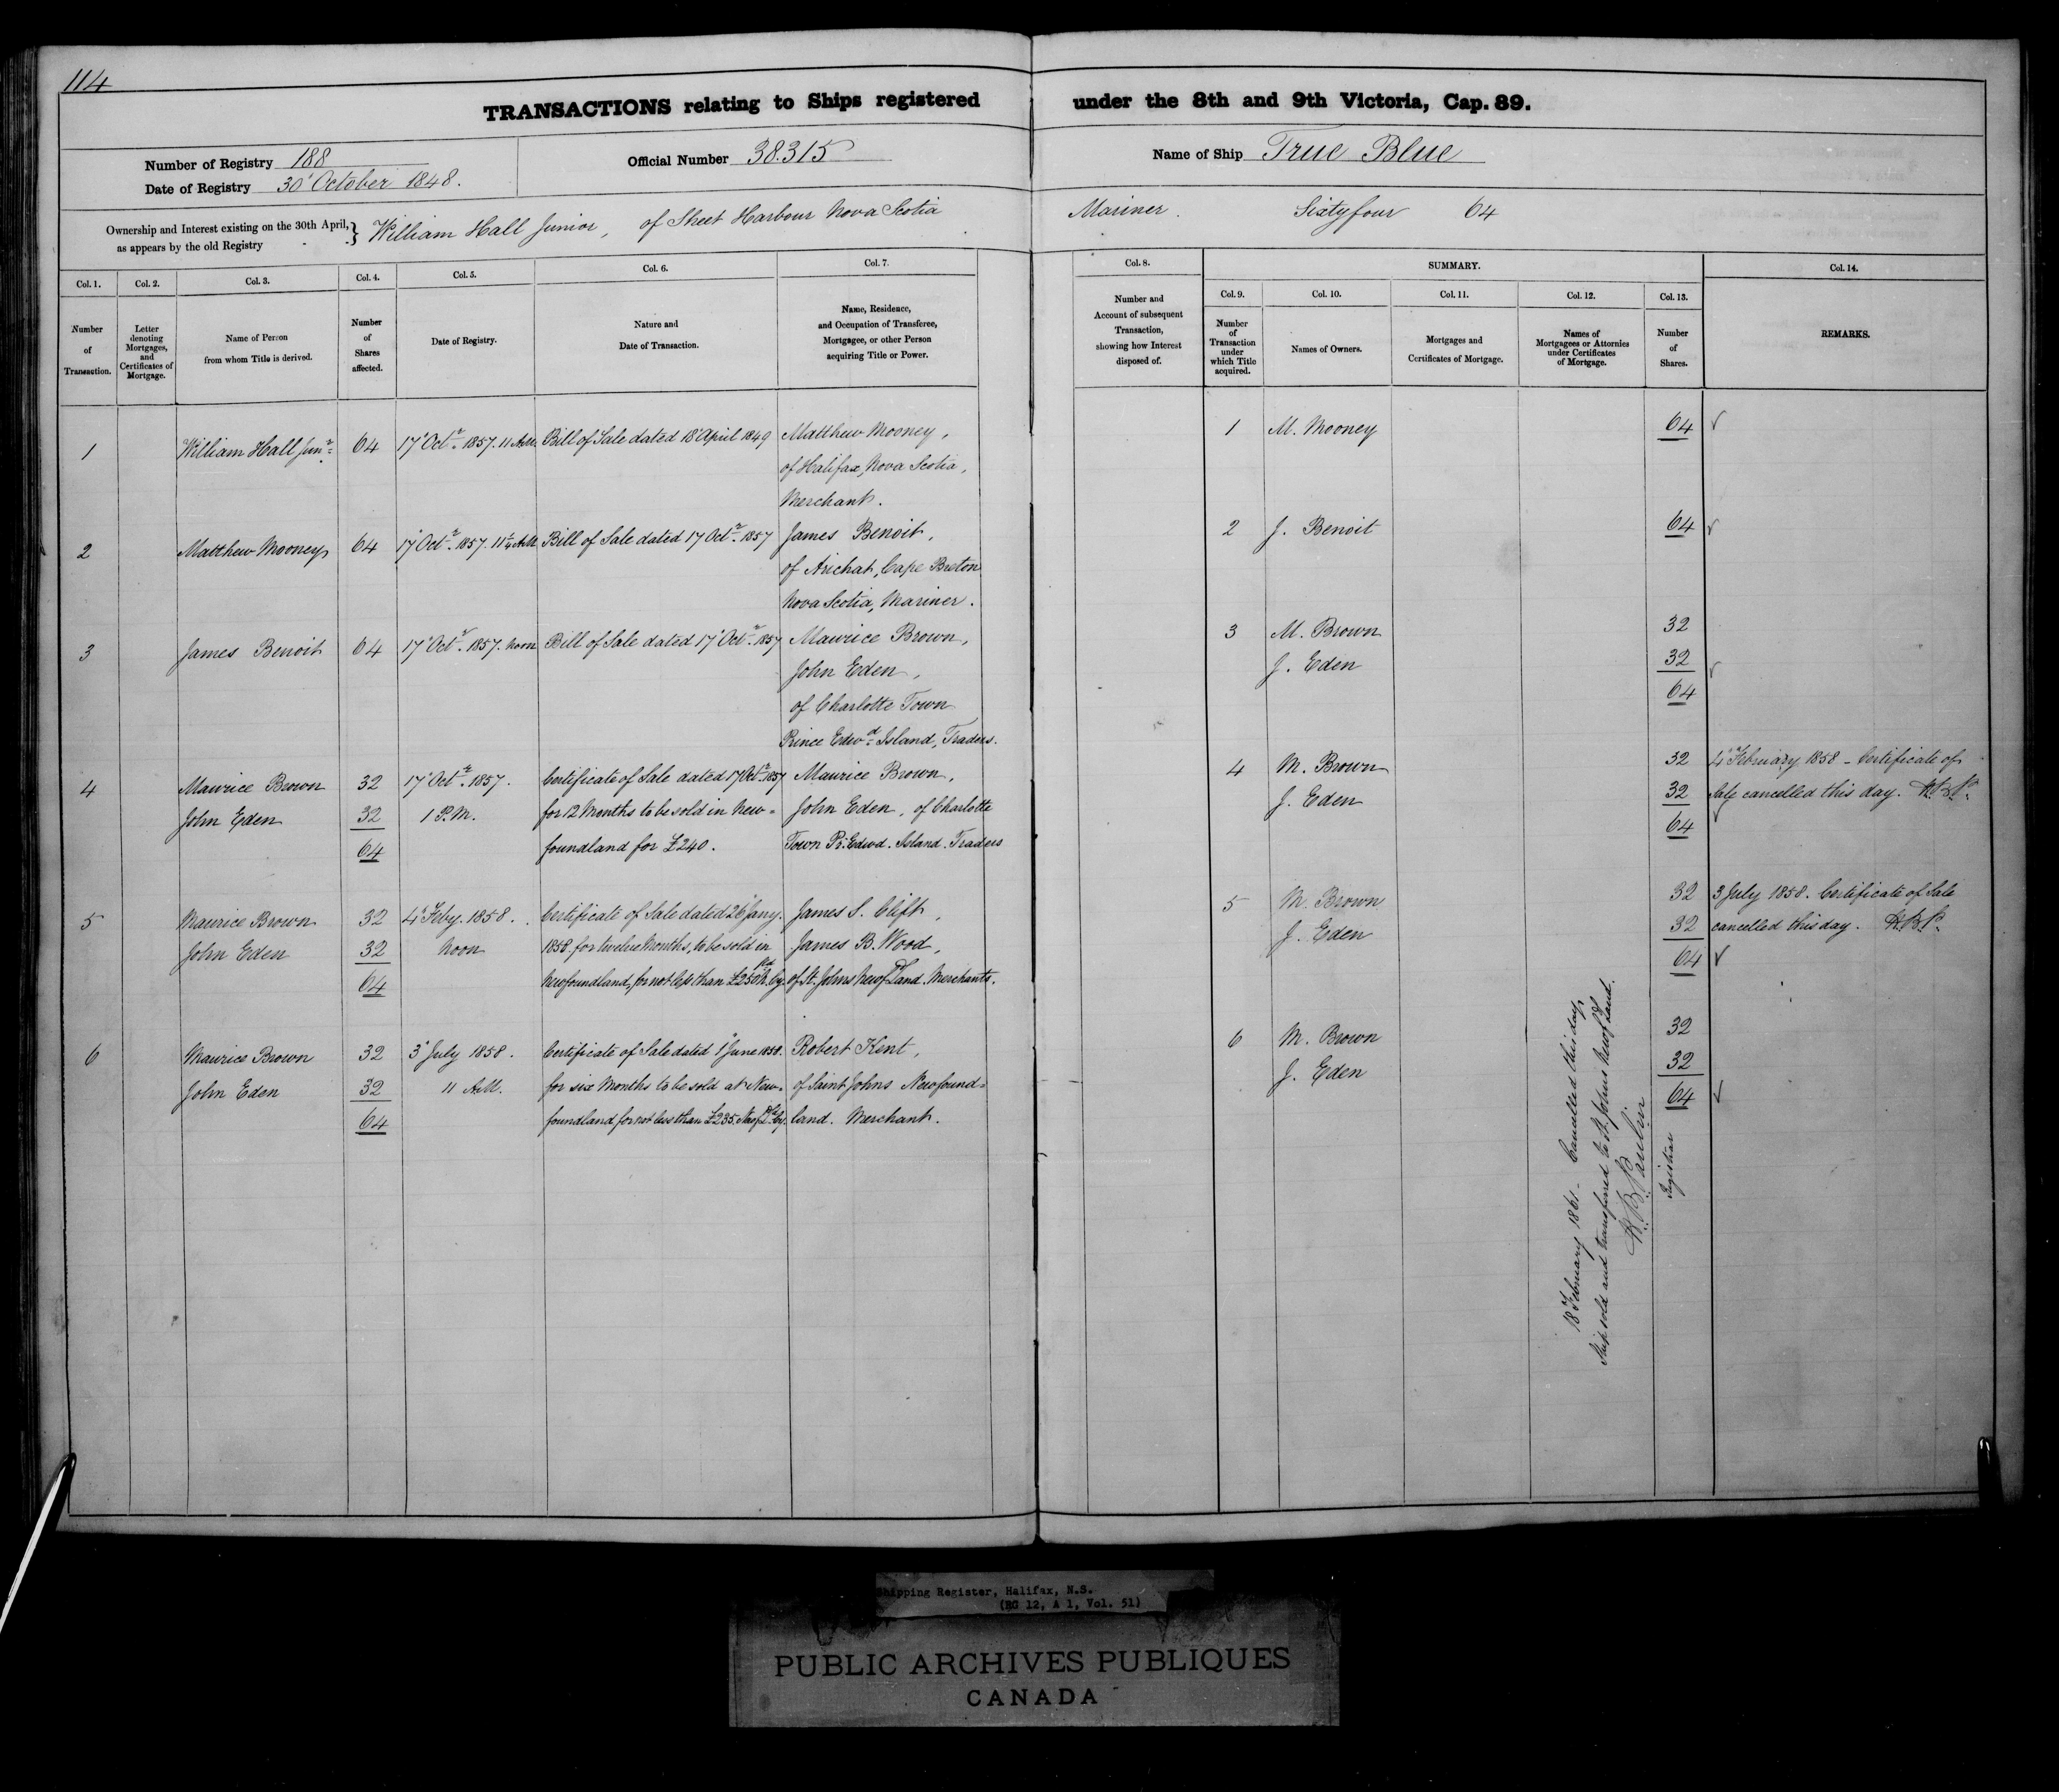 114
TRANSACTIONS relating to Ships registered under the 8th and 9th Victoria, Cap. 89.
Number of Registry 188
Date of Registry 30' October 1848.
Official Number 38.315
Name of Ship True Blue
Ownership and Interest existing on the 30th April, as appears by the old Registry } William Hall Junior, of Sheet Harbour Nova Scotia Mariner. Sixty four 64
Col. 1. Number of Transaction.
Col. 2. Letter denoting Mortgages, and Certificates of Mortgage.
Col. 3. Name of Person from whom Title is derived.
Col. 4. Number of Shares affected.
Col. 5. Date of Registry.
Col. 6. Nature and Date of Transaction.
Col. 7. Name, Residence, and Occupation of Transferee, Mortgagee, or other Person acquiring Title or Power.
Col. 8. Number and Account of subsequent Transaction, showing how Interest disposed of.
SUMMARY.
Col. 9. Number of Transaction under which Title acquired.
Col. 10. Names of Owners.
Col. 11. Mortgages and Certificates of Mortgage.
Col. 12. Names of Mortgagees or Attornies under Certificates of Mortgage.
Col. 13. Number of Shares.
Col. 14. REMARKS.
1 William Hall Junr 64 17' Octr 1857. 11 A.M. Bill of Sale dated 18' April 1849 Matthew Mooney,
of Halifax, Nova Scotia,
Merchant.
1 M. Mooney 64
2 Matthew Mooney 64 17' Octr 1857. 11¼ A.M. Bill of Sale dated 17 Octr 1857 James Benoit,
of Arichat, Cape Breton
Nova Scotia, Mariner.
2 J. Benoit 64
3 James Benoit 64 17' Octr 1857. Noon Bill of Sale dated 17' Octr 1857 Maurice Brown,
John Eden,
of Charlotte Town
Prince Edwd Island, Traders.
3 M. Brown 32
J. Eden 32
64
4 Maurice Brown 32 17' Octr 1857. Certificate of Sale dated 17 Octr 1857 Maurice Brown,
John Eden 32 1 P.M. for 12 Months to be sold in New= John Eden, of Charlotte
64 foundland for £240. Town Pr. Edwd. Island. Traders
4 M. Brown 32 4' February 1858 - Certificate of
J. Eden 32 Sale cancelled this day. H.B.P.
64
5 Maurice Brown 32 4' Feby. 1858. Certificate of Sale dated 26' Jany. James S. Clift,
John Eden 32 Noon 1858. for twelve Months, to be sold in James B. Wood,
64 Newfoundland, for not less than £250 Cy. of St. Johns Newfdland. Merchants.
5 M. Brown 32 3 July 1858. Certificate of Sale
J. Eden 32 cancelled this day. H.B.P.
64
6 Maurice Brown 32 3' July 1858. Certificate of Sale dated 1' June 1858. Robert Kent,
John Eden 32 11 A.M. for six Months to be sold at New= of Saint Johns Newfound=
64 foundland for not less than £235. Cy. land. Merchant.
6 M. Brown 32
J. Eden 32
64
18' February 1861 - Cancelled this day,
Ship sold and transferred to St. Johns Newfdland.
H.B. Paulin
Registrar
Shipping Register, Halifax, N.S.
(RG 12, A 1, Vol. 51)
PUBLIC ARCHIVES PUBLIQUES
CANADA